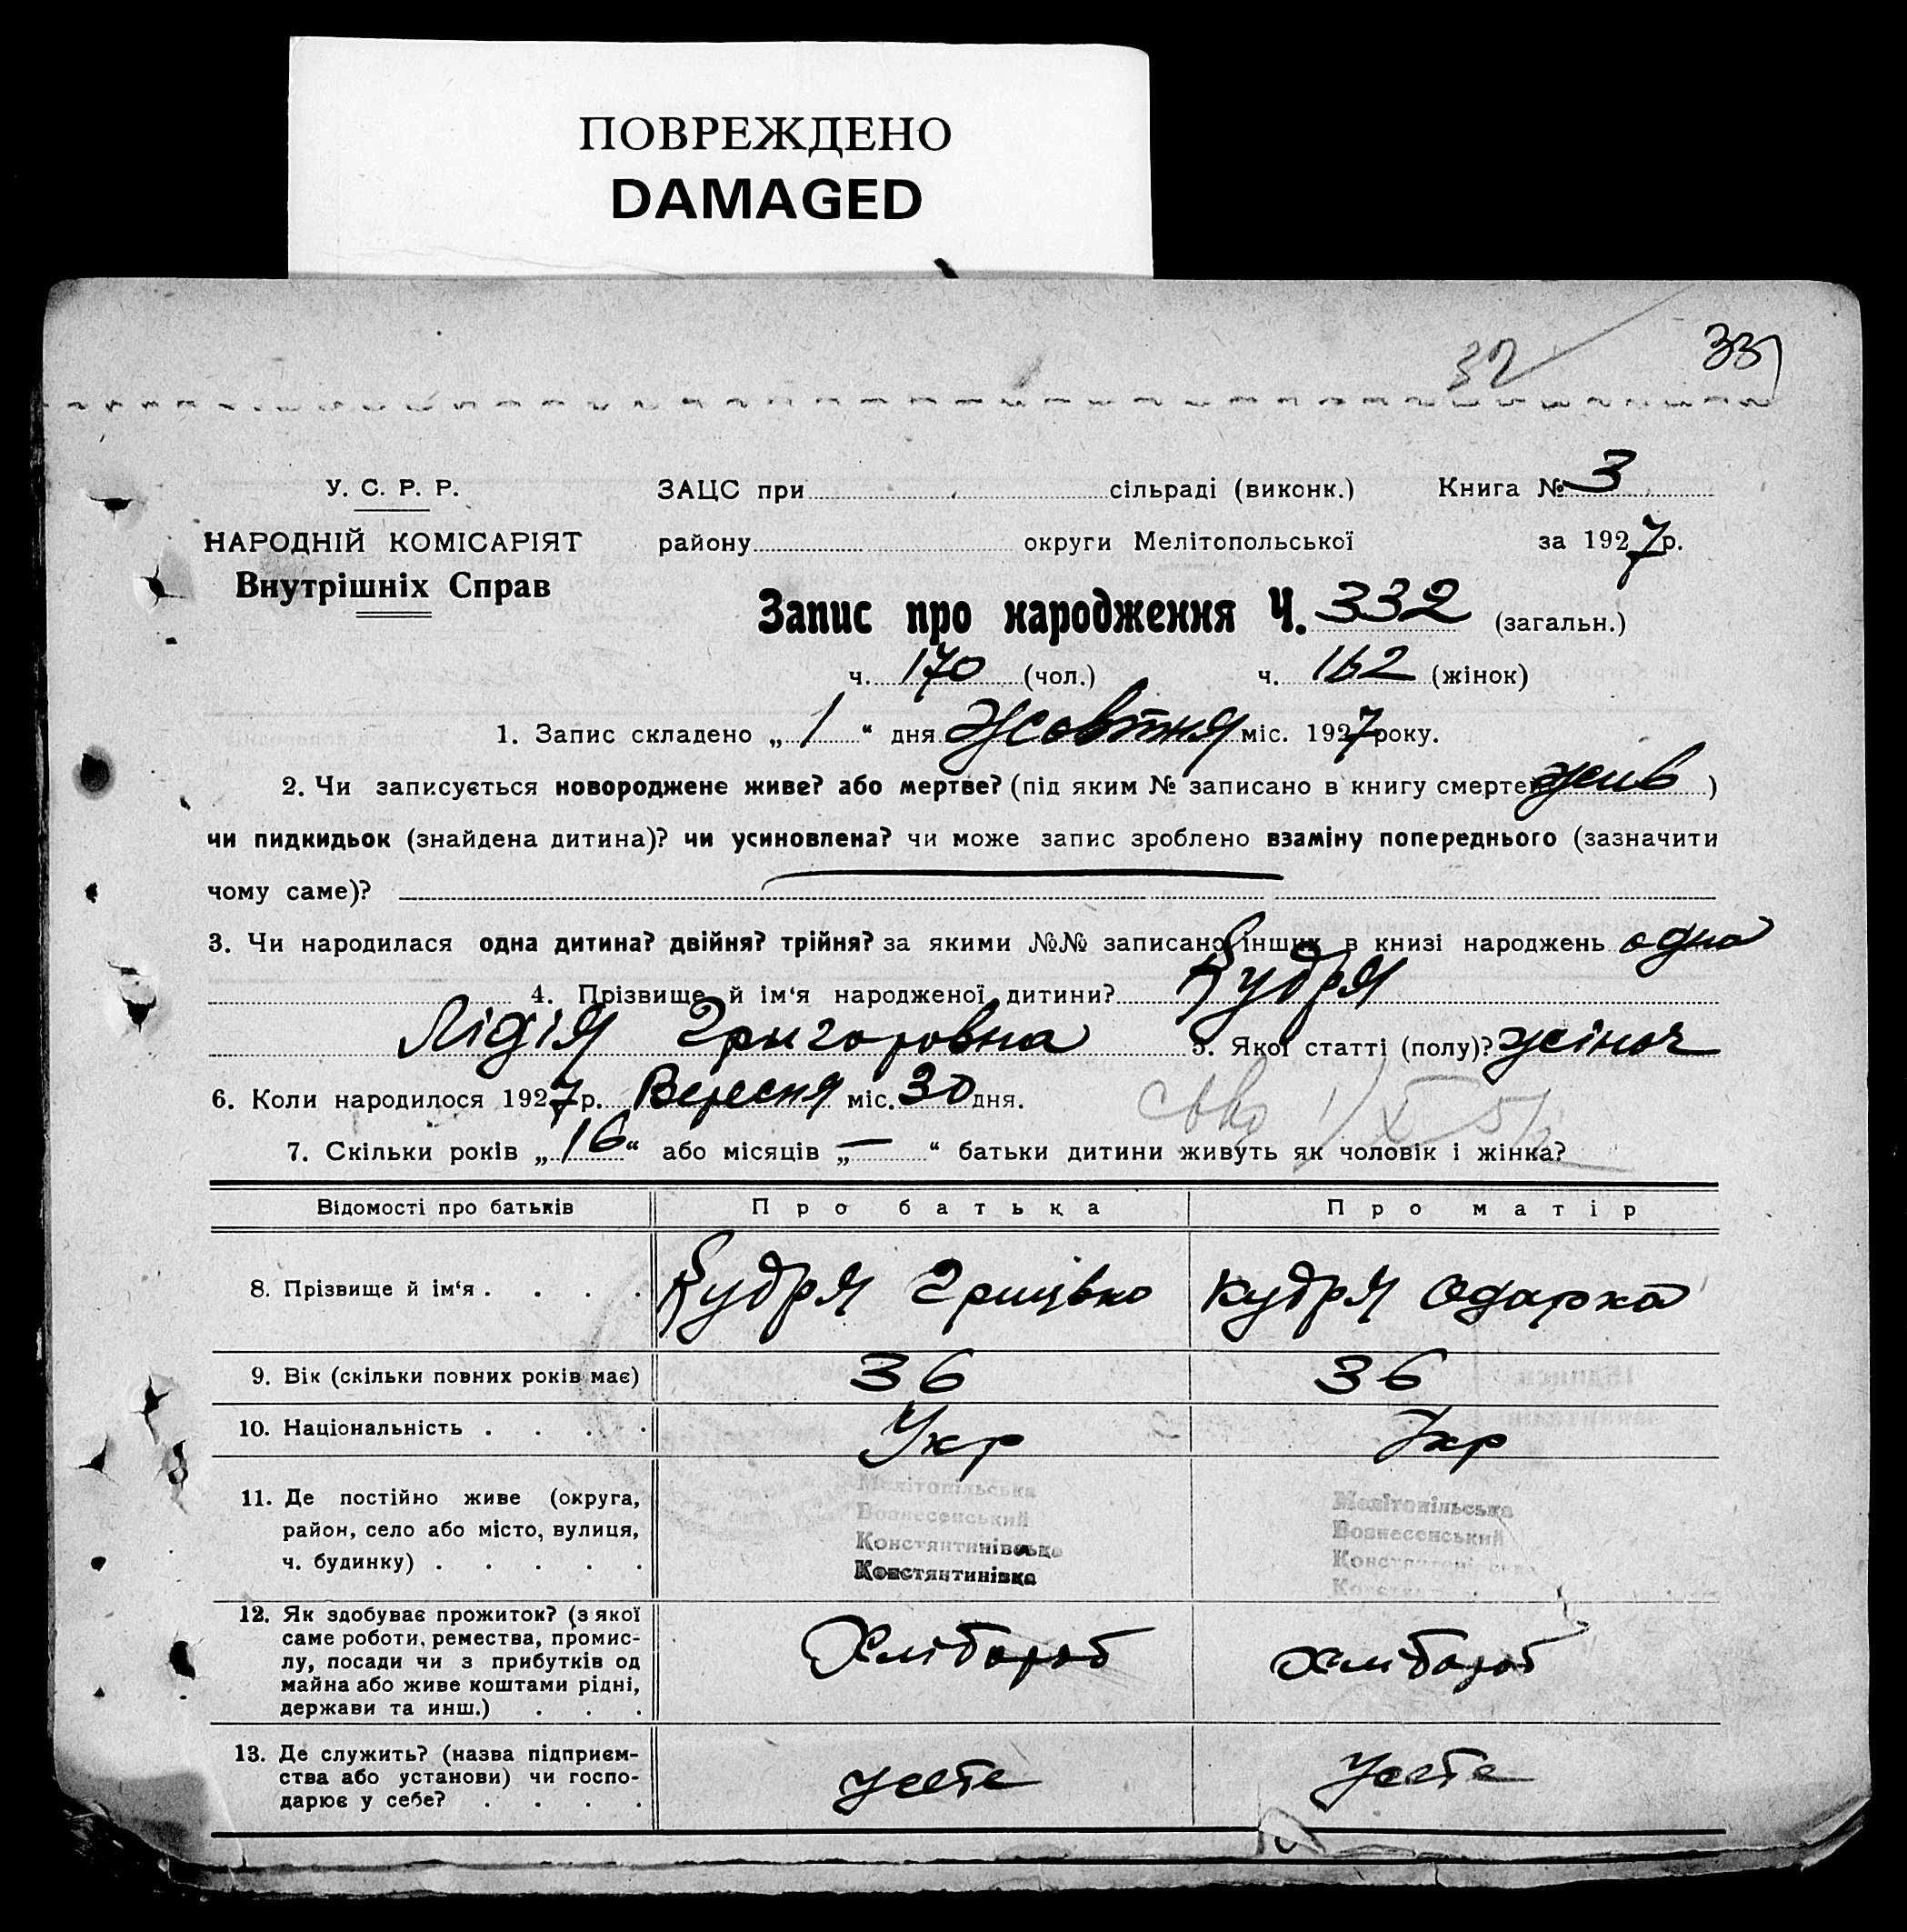 ПОВРЕЖДЕНО
DAMAGED
32
33
У. С. Р. Р.
НАРОДНІЙ КОМІСАРІЯТ
Внутрішніх Справ
ЗАЦС при сільраді (виконк.) Книга № 3
району округи Мелітопольської за 1927 р.
Запис про народження Ч. 332 (загальн.)
ч. 170 (чол.) ч. 162 (жінок)
1. Запис складено „ 1 “ дня Жовтня міс. 1927 року.
2. Чи записується новороджене живе? або мертве? (під яким № записано в книгу смертей жив )
чи пидкидьок (знайдена дитина)? чи усиновлена? чи може запис зроблено взаміну попереднього (зазначити
чому саме)?
3. Чи народилася одна дитина? двійня? трійня? за якими №№ записано інших в книзі народжень одна
4. Прізвище й ім‘я народженої дитини? Кудря
Лідія Григоровна 5. Якої статті (полу)? жіноч
6. Коли народилося 1927 р. Вересня міс. 30 дня.
7. Скільки років „ 16 “ або місяців „ — “ батьки дитини живуть як чоловік і жінка?
Відомості про батьків Про батька Про матір
8. Прізвище й ім‘я . . . . Кудря Грицько Кудря Одарка
9. Вік (скільки повних років має) 36 36
10. Національність . . . . Укр Укр
11. Де постійно живе (округа,
район, село або місто, вулиця,
ч. будинку) . . . . .
Мелітопільська
Вознесенський
Констянтинівська
Констянтинівка
Мелітопільська
Вознесенський
12. Як здобуває прожиток? (з якої
саме роботи, ремества, промис-
лу, посади чи з прибутків од
майна або живе коштами рідні,
держави та инш.) . . .
Хлібороб Хлібороб
13. Де служить? (назва підприєм-
ства або установи) чи госпо-
дарює у себе? . . . .
усебе усебе